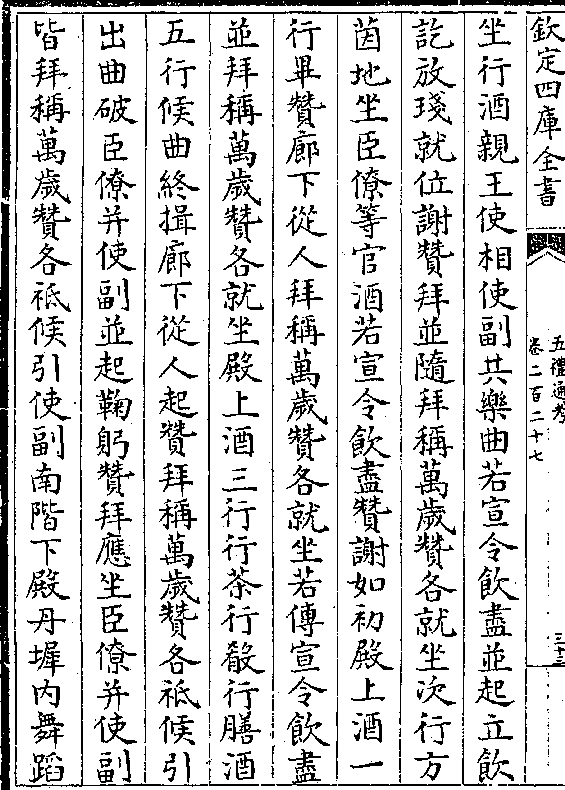 欽定四庫全書
五禮通考
卷二百二十七
三十三
坐行酒親王使相使副共樂曲若宣令飲盡並起立飲
訖放琖就位謝贊拜並隨拜稱萬歲贊各就坐次行方
茵地坐臣僚等官酒若宣令飲盡贊謝如初殿上酒一
行畢贊廊下從人拜稱萬歲贊各就坐若傳宣令飲盡
並拜稱萬歲贊各就坐殿上酒三行行茶行殽行膳酒
五行候曲終揖廊下從人起贊拜稱萬歲贊各祗候引
出曲破臣僚并使副並起鞠躬贊拜應坐臣僚并使副
皆拜稱萬歲贊各祗候引使副南階下殿丹墀内舞蹈